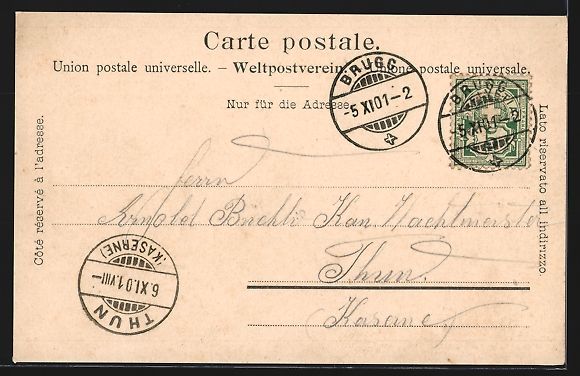 Carte postale.
Union postale universelle. – Weltpostverein. – Unione postale universale.
Nur für die Adresse.
Côté réservé à l'adresse.
Lato riservato all indirizzo.
BRUGG
-5 XI 01-2
BRUGG
-5 XI 01-2
5
Herrn
Arnold Büchli Kan. Wachtmeister
Thun.
Kaserne
THUN
6.XI.01.VIII-
(KASERNE)